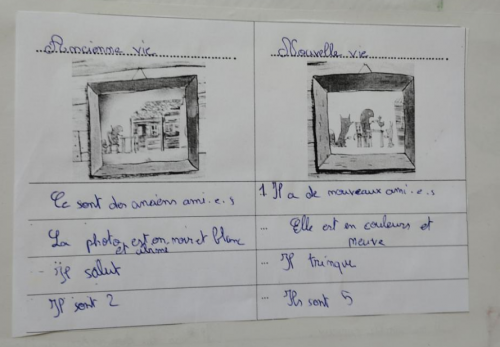 Ancienne vie
Nouvelle vie
Ce sont des anciens ami.e.s
1 Il a de nouveaux ami.e.s
La photo est en noir et blanc
et
... Elle est en couleurs et
neuve
Il salut
... Il trinque
Il sont 2
... Ils sont 5